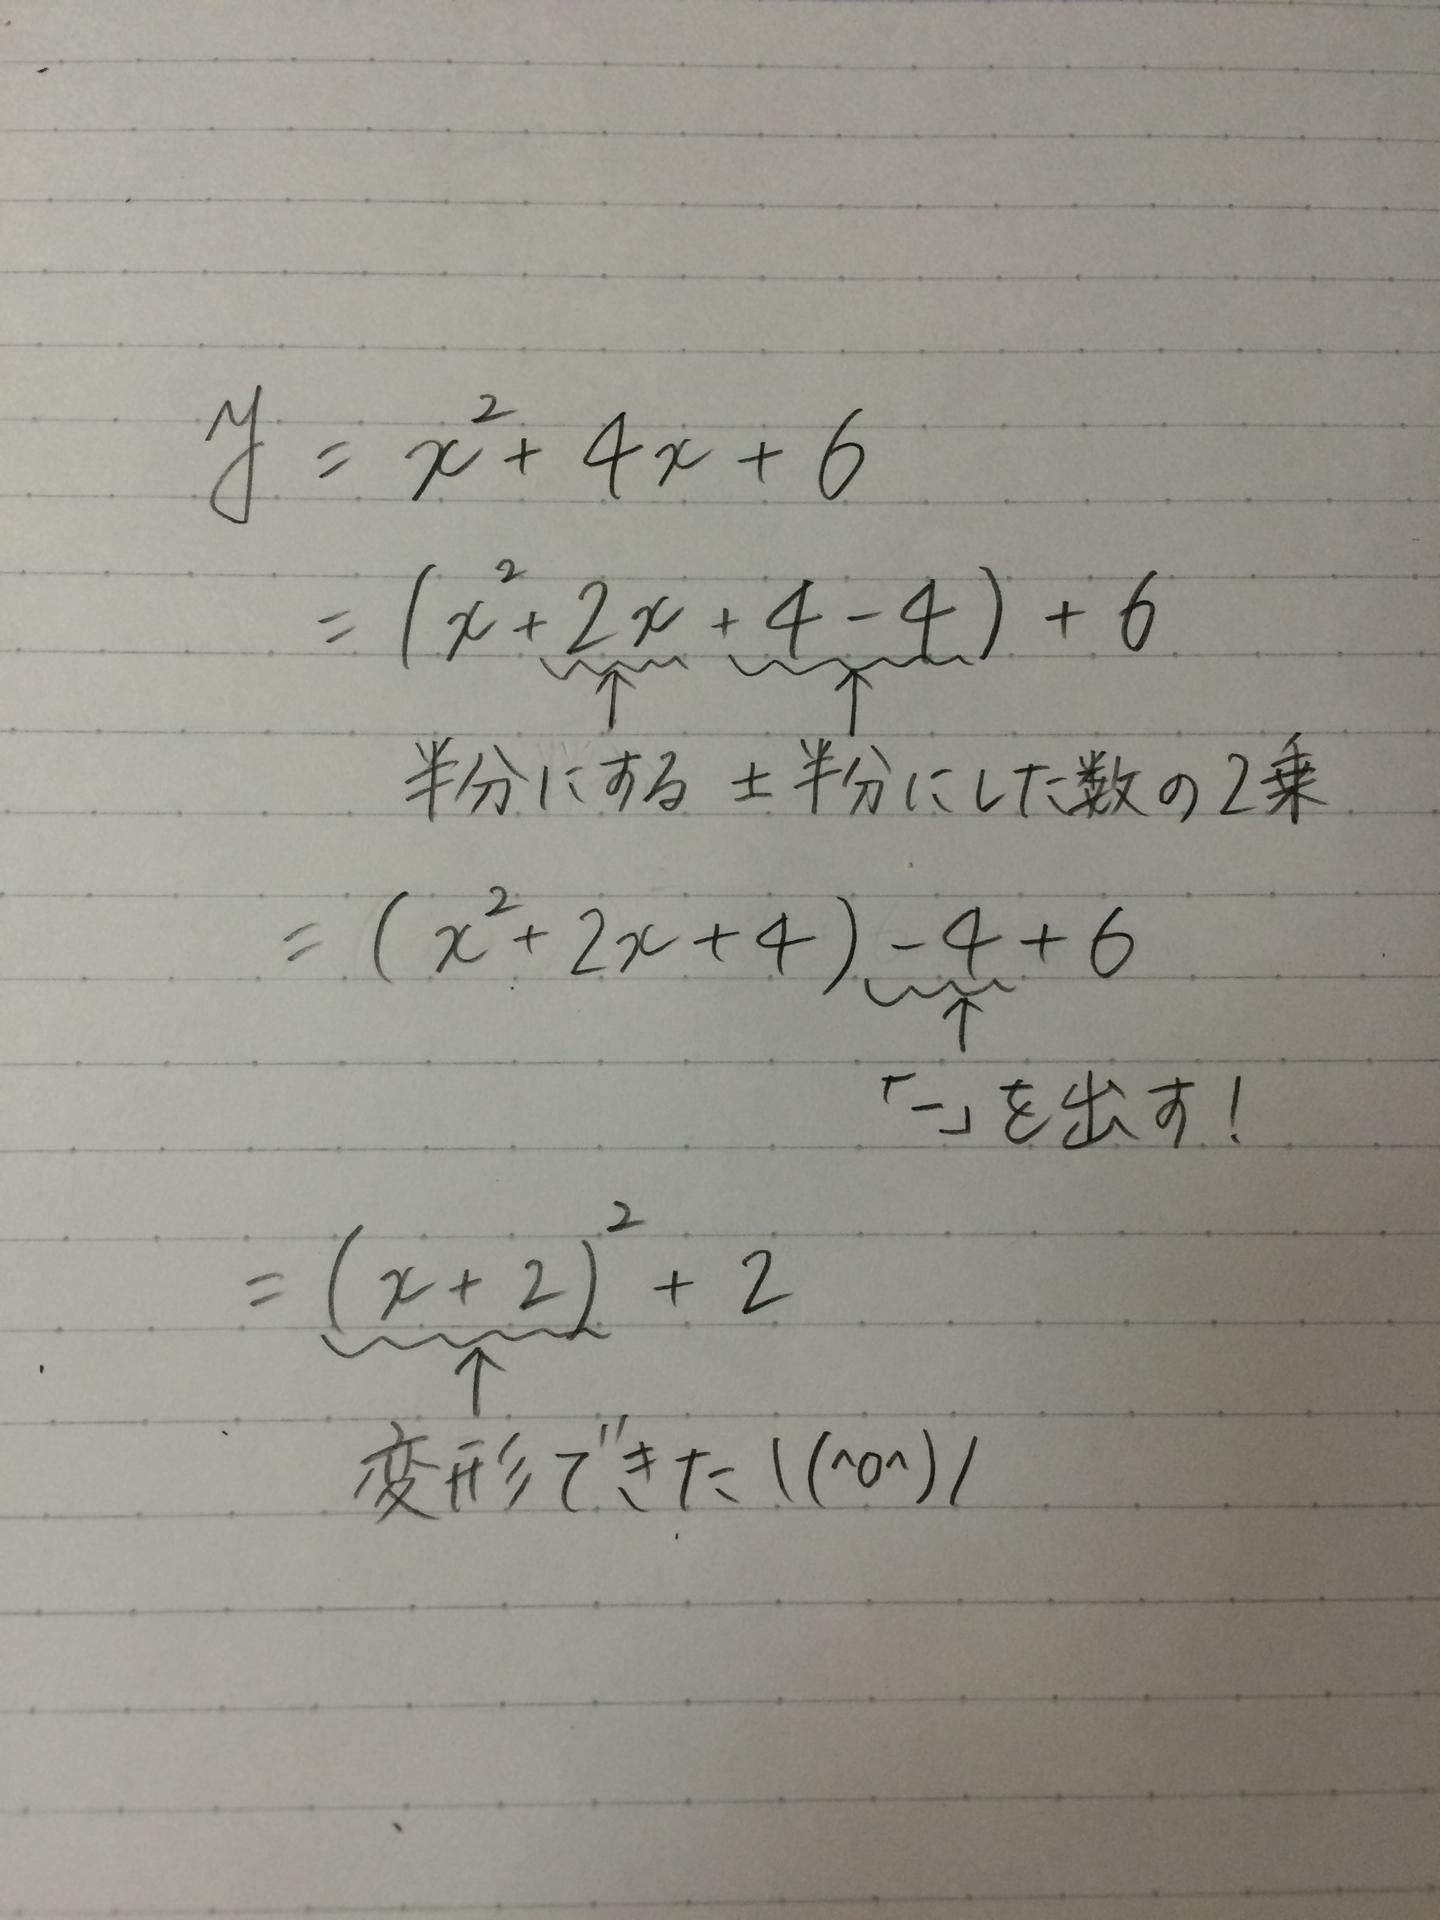 y = x² + 4x + 6
= (x² + 2x + 4 - 4) + 6
↑ ↑
半分にする ±半分にした数の2乗
= (x² + 2x + 4) - 4 + 6
↑
「-」を出す!
= (x + 2)² + 2
↑
変形できた \(^o^)/